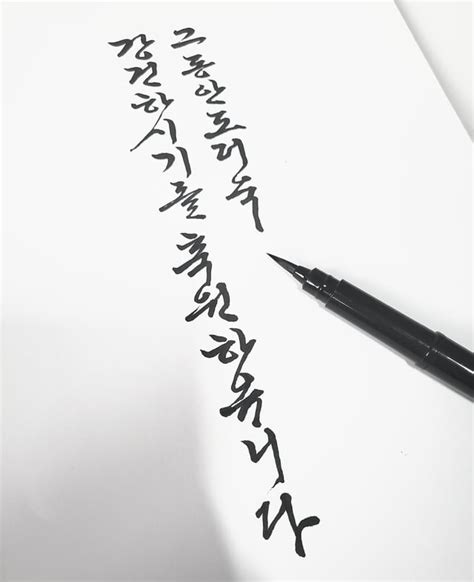 그동안도더욱
강건하시기를 축원하옵니다